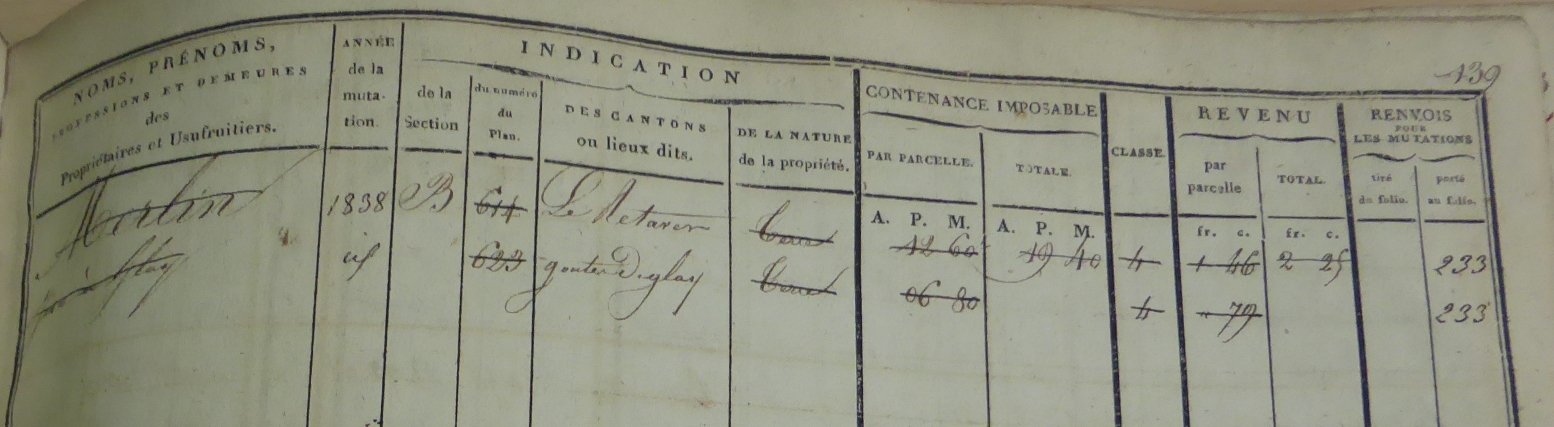 139
NOMS, PRÉNOMS,
PROFESSIONS ET DEMEURES
des
Propriétaires et Usufruitiers.
ANNÉE
de la
muta-
tion.
INDICATION
de la
Section
du numéro
du
Plan.
DES CANTONS
ou lieux dits.
DE LA NATURE
de la propriété.
CONTENANCE IMPOSABLE
PAR PARCELLE.
TOTALE.
A. P. M.
A. P. M.
CLASSE.
REVENU
par
parcelle
TOTAL.
fr. c.
fr. c.
RENVOIS
POUR
LES MUTATIONS
tiré
du folio.
porté
au folio.
Morlin 1838 B 614 Le Metaver 12 60 19 40 4 1 46 2 25 233
à Glay id 623 goutte Diglay 06 80 4 " 79 233